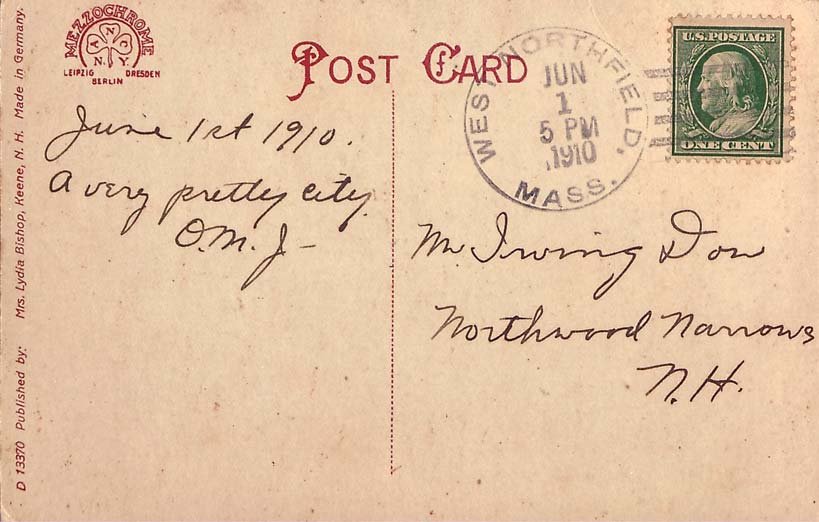 MEZZOCHROME
A N C Y
N.Y.
LEIPZIG DRESDEN
BERLIN
POST CARD
WEST NORTHFIELD,
MASS.
JUN
1
5 PM
1910
U.S. POSTAGE
ONE CENT
June 1st 1910.
A very pretty city.
O.M.J-
Mr Irving Dow
Northwood Narrows
N.H.
D 13370 Published by: Mrs. Lydia Bishop, Keene, N. H. Made in Germany.